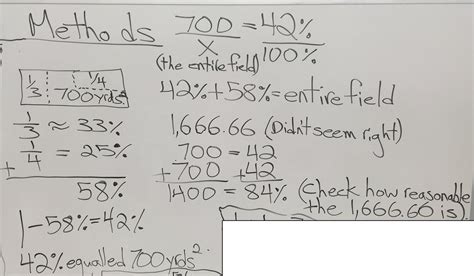 Methods
700 = 42%
x 100%
(the entire field)
1/4
1/3 700yrds²
42% + 58% = entire field
1/3 ≈ 33%
+ 1/4 = 25%
58%
1,666.66 (Didn't seem right)
700 = 42
+ 700 + 42
1400 = 84% (Check how reasonable
the 1,666.60 is)
1 - 58% = 42%
42% equalled 700yrds².